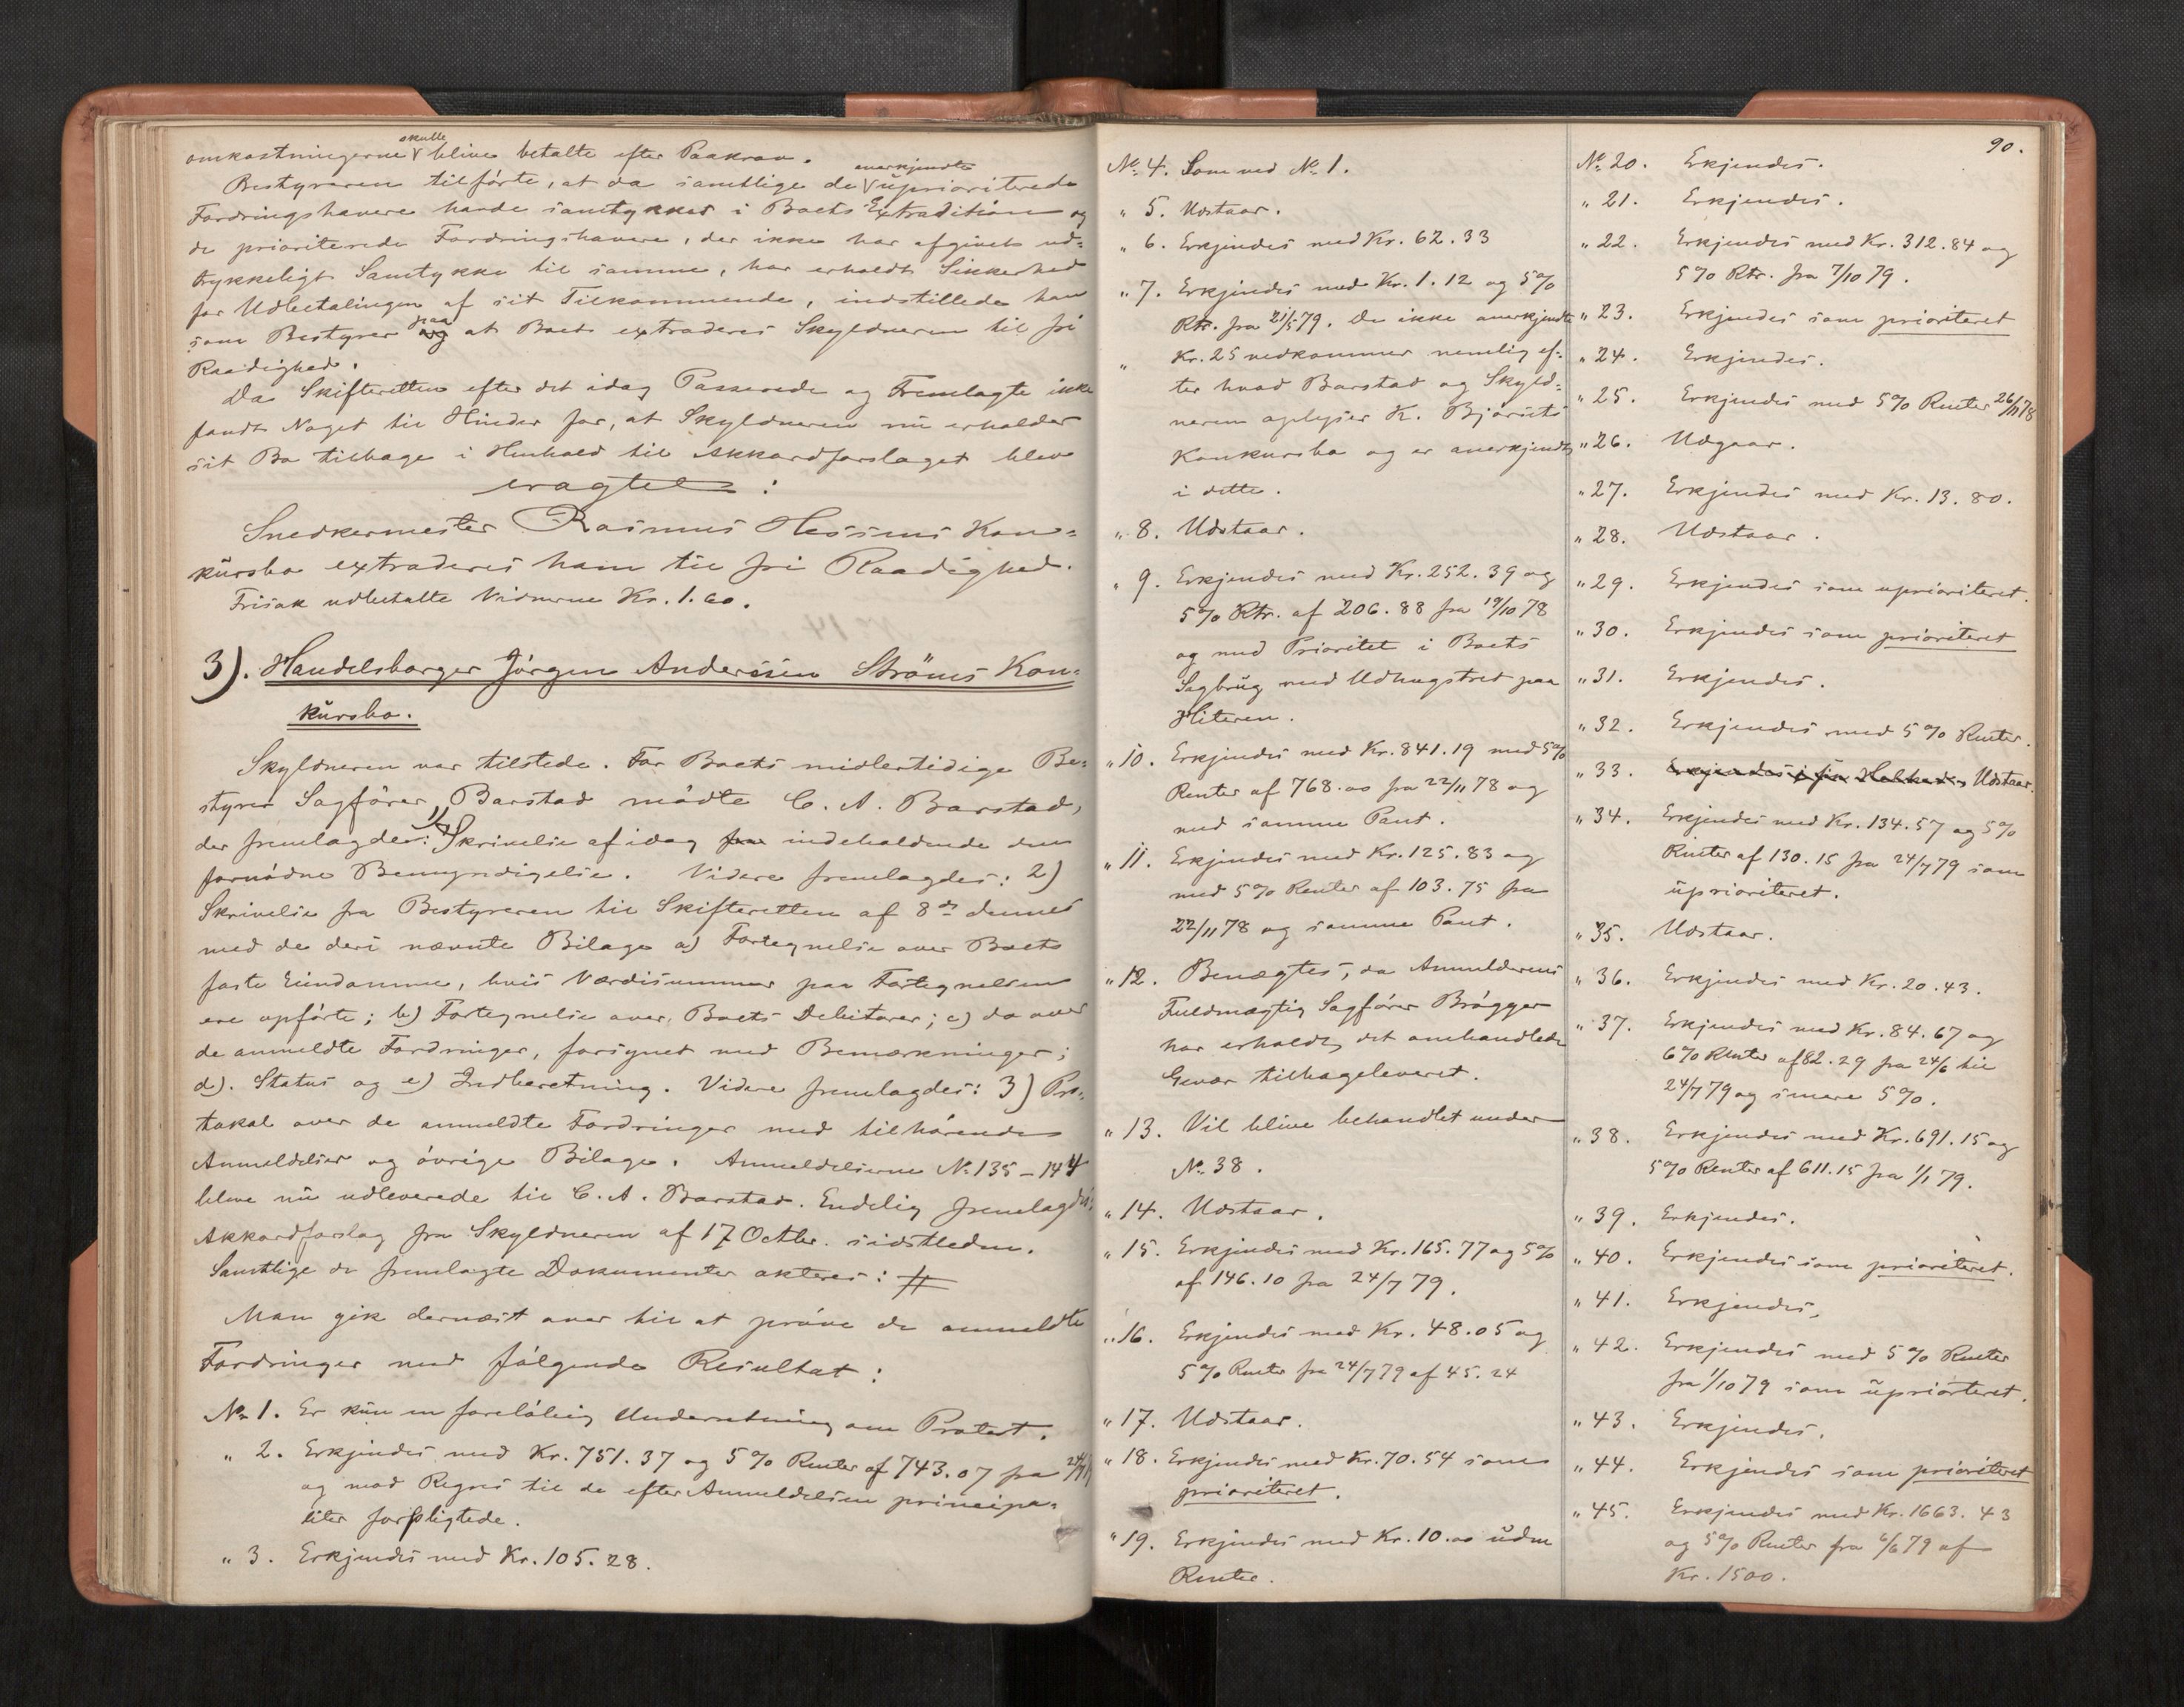 omkostningerne skulle blive betalte efter Paakrav.
Bestyreren tilførte, at da samtlige de anerkjendte upriориterede
Fordringshavere havde samtykket i Boets Extradition og
de prioriterede Fordringshavere, der ikke har afgivet ud-
trykkeligt Samtykke til samme, har erholdt Sikkerhed
for Udbetalingen af sit Tilkommende, indstillede han
som Bestyrer paa at Boet extraderes Skyldneren til fri
Raadighed.
Da Skifteretten efter det idag Passerede og Fremlagte ikke
fandt Noget til Hinder for, at Skyldneren nu erholder
sit Bo tilbage i Henhold til Akkordforslaget blev
eragtet:
Snedkermester Rasmus Hessens Kon-
kursbo extraderes ham til fri Raadighed.
Frisak udbetalte Vidnerne Kr. 1.60.
3). Handelsborger Jørgen Andersen Strøms Kon-
kursbo.
Skyldneren var tilstede. For Boets midlertidige Be-
styrer Sagfører Barstad mødte C. A. Barstad,
der fremlagde: 1) Skrivelse af idag indeholdende den
fornødne Bemyndigelse. Videre fremlagdes: 2)
Skrivelse fra Bestyreren til Skifteretten af 8de dennes
med de deri nævnte Bilage a) Fortegnelse over Boets
faste Eiendomme, hvis Værdisummer paa Fortegnelsen
ere opførte; b) Fortegnelse over Boets Debitorer; c) do over
de anmeldte Fordringer, forsynet med Bemærkninger;
d). Status og e) Indberetning. Videre fremlagdes: 3) Pro-
tokol over de anmeldte Fordringer med tilhørende
Anmeldelser og øvrige Bilage. Anmeldelserne No 135-144
bleve nu udleverede til C. A. Barstad. Endelig fremlagdes:
Akkordforslag fra Skyldneren af 17 Octbr. sidstleden.
Samtlige de fremlagte Dokumenter akteres: #
Man gik dernæst over til at prøve de anmeldte
Fordringer med følgende Resultat:
No 1. Er kun en foreløbig Underretning om Protest.
" 2. Erkjendes med Kr. 751.37 og 5% Renter af 743.07 fra
og med Regres til de efter Anmeldelsen principa-
liter forpligtede.
" 3. Erkjendes med Kr. 105.28.
No 4. Som ved No 1.
" 5. Udstaar.
" 6. Erkjendes med Kr. 62.33
" 7. Erkjendes med Kr. 1.12 og 5%
Rtr. fra 21/5 79. De ikke anerkjendte
" Kr. 25 vedkommer nemlig ef-
ter hvad Barstad og Skyld-
neren oplyser K. Bjørsets
Konkursbo og er anerkjendt
i dette.
" 8. Udstaar.
" 9. Erkjendes med Kr. 252.39 og
5% Rtr. af 206.88 fra 19/10 78
og med Prioritet i Boets
Sagbrug med Udhugstret paa
Hiteren.
" 10. Erkjendes med Kr. 841.19 med 5%
Renter af 768.00 fra 22/11 78 og
med samme Pant.
" 11. Erkjendes med Kr. 125.83 og
med 5% Renter af 103.75 fra
22/11 78 og samme Pant.
" 12. Benægtes, da Anmelderens
Fuldmægtig Sagfører Brøgger
har erholdt det omhandlede
Gevær tilbageleveret.
" 13. Vil blive behandlet under
No 38.
" 14. Udstaar.
" 15. Erkjendes med Kr. 165.77 og 5%
af 146.10 fra 24/7 79.
" 16. Erkjendes med Kr. 48.05 og
5% Renter fra 24/7 79 af 45.24
" 17. Udstaar.
" 18. Erkjendes med Kr. 70.54 som
prioriteret.
" 19. Erkjendes med Kr. 10.00 uden
Renter.
90.
No 20. Erkjendes.
" 21. Erkjendes.
" 22. Erkjendes med Kr. 312.84 og
5% Rtr. fra 7/10 79.
" 23. Erkjendes som prioriteret
" 24. Erkjendes.
" 25. Erkjendes med 5% Renter 26/11 78
" 26. Udgaar.
" 27. Erkjendes med Kr. 13.80.
" 28. Udstaar.
" 29. Erkjendes som uprioriteret.
" 30. Erkjendes som prioriteret
" 31. Erkjendes.
" 32. Erkjendes med 5% Renter.
" 33. Erkjendes i sin Helhed. Udstaar.
" 34. Erkjendes med Kr. 134.57 og 5%
Renter af 130.15 fra 24/7 79 som
uprioriteret.
" 35. Udstaar.
" 36. Erkjendes med Kr. 20.43.
" 37. Erkjendes med Kr. 84.67 og
6% Renter af 82.29 fra 24/6 til
24/7 79 og senere 5%.
" 38. Erkjendes med Kr. 691.15 og
5% Renter af 611.15 fra 1/1 79.
" 39. Erkjendes.
" 40. Erkjendes som prioriteret.
" 41. Erkjendes,
" 42. Erkjendes med 5% Renter
fra 1/10 79 som uprioriteret.
" 43. Erkjendes.
" 44. Erkjendes som prioriteret
" 45. Erkjendes med Kr. 1663.43
og 5% Renter fra 6/6 79 af
Kr. 1500.